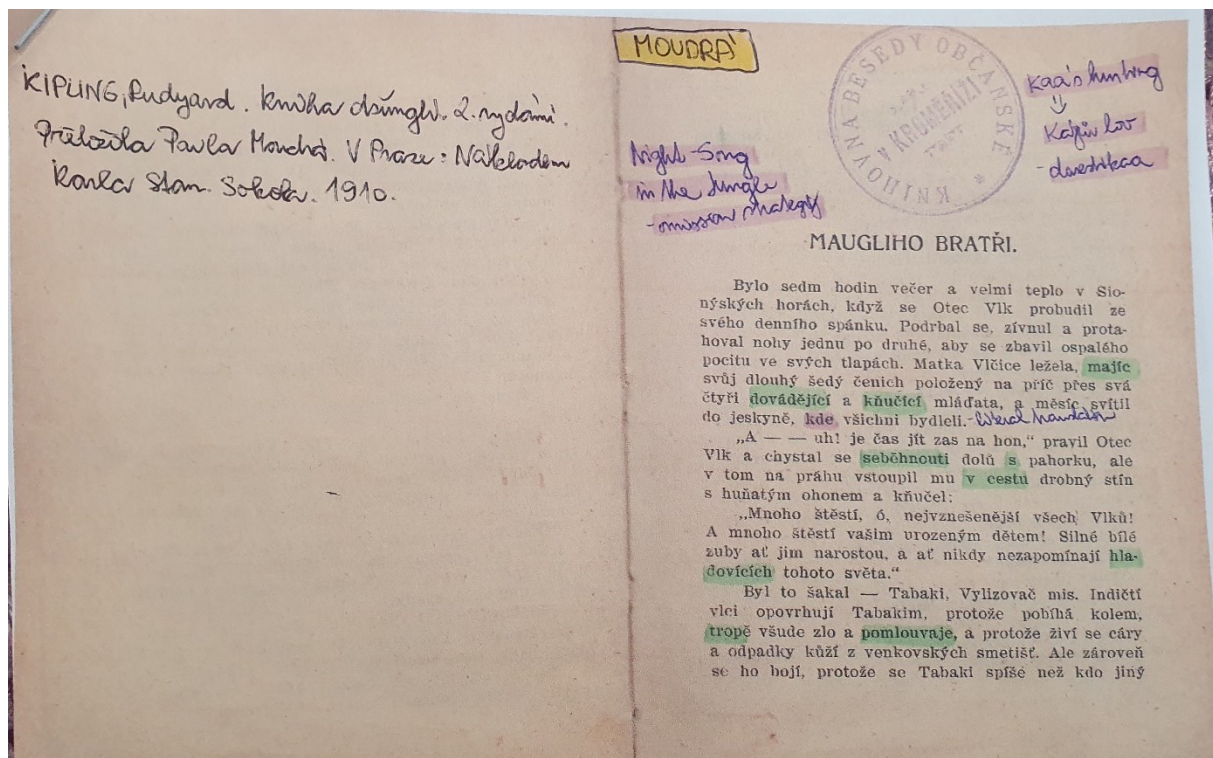 KIPLING, Rudyard. Kniha džunglí. 2. vydání.
Přeložila Pavla Moudrá. V Praze: Nákladem
Karla Stan. Sokola. 1910.
MOUDRÁ
KNIHOVNA BESEDY OBČANSKÉ
V KROMĚŘÍŽI
Kaa's hunting
⇓
Kájův lov
- domestikace
Night-Song
in the Jungle
- omission strategy
MAUGLIHO BRATŘI.
Bylo sedm hodin večer a velmi teplo v Sio-
nýských horách, když se Otec Vlk probudil ze
svého denního spánku. Podrbal se, zívnul a prota-
hoval nohy jednu po druhé, aby se zbavil ospalého
pocitu ve svých tlapách. Matka Vlčice ležela, majíc
svůj dlouhý šedý čenich položený na příč přes svá
čtyři dovádějící a kňučící mláďata, a měsíc svítil
do jeskyně, kde všichni bydleli. - literal translation
„A — — uh! je čas jít zas na hon,“ pravil Otec
Vlk a chystal se seběhnouti dolů s pahorku, ale
v tom na práhu vstoupil mu v cestu drobný stín
s huňatým ohonem a kňučel:
„Mnoho štěstí, ó, nejvznešenější všech Vlků!
A mnoho štěstí vašim urozeným dětem! Silné bílé
zuby ať jim narostou, a ať nikdy nezapomínají hla-
dovících tohoto světa.“
Byl to šakal — Tabaki, Vylizovač mis. Indičtí
vlci opovrhují Tabakim, protože pobíhá kolem,
tropě všude zlo a pomlouvaje, a protože živí se cáry
a odpadky kůží z venkovských smetišť. Ale zároveň
se ho bojí, protože se Tabaki spíše než kdo jiný